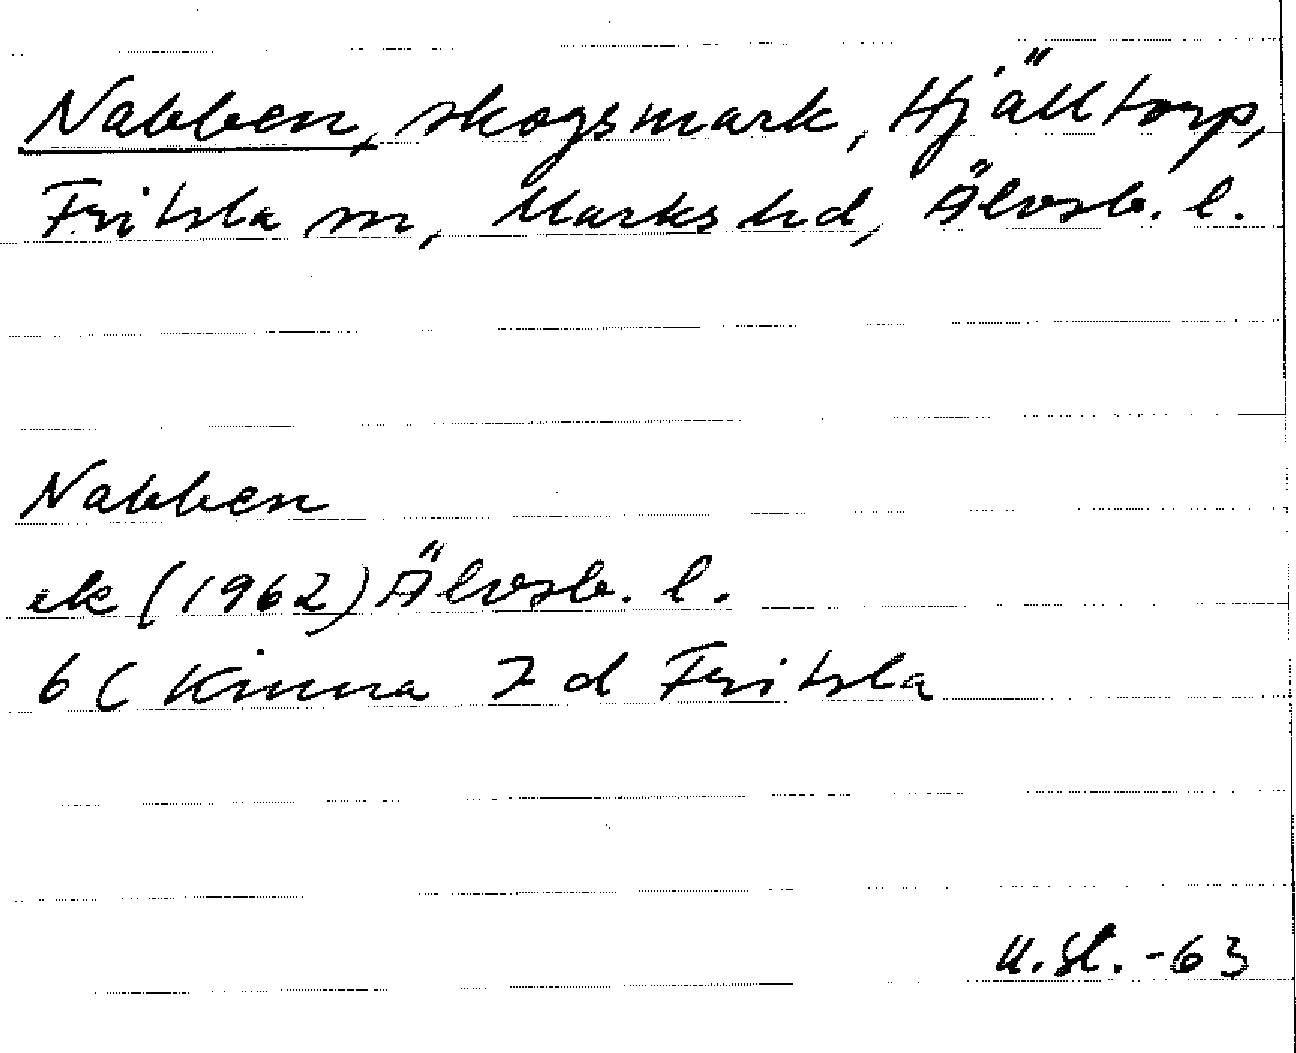 Nabben, skogsmark, Hjälltorp,
Fritsla sn, Marks hd, Älvsb. l.
Nabben
ek (1962) Älvsb. l.
6 C Kinna 7 d Fritsla
U.Sl. -63